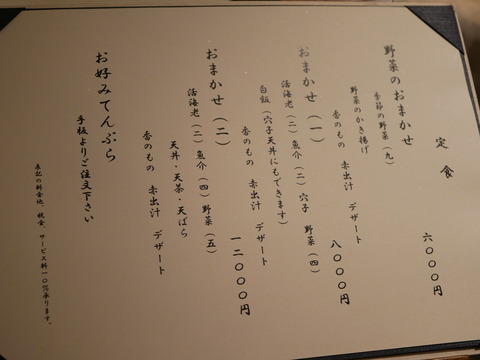 定食
野菜のおまかせ 六〇〇〇円
季節の野菜（九）
野菜のかき揚げ
香のもの 赤出汁 デザート
おまかせ（一） 八〇〇〇円
活海老（二）魚介（二）穴子 野菜（四）
白飯（穴子天丼にもできます）
香のもの 赤出汁 デザート
おまかせ（二） 一二〇〇〇円
活海老（二）魚介（四）野菜（五）
天丼・天茶・天ばら
香のもの 赤出汁 デザート
お好みてんぷら
手板よりご注文下さい
表記の料金他、税金、サービス料一〇％承ります。